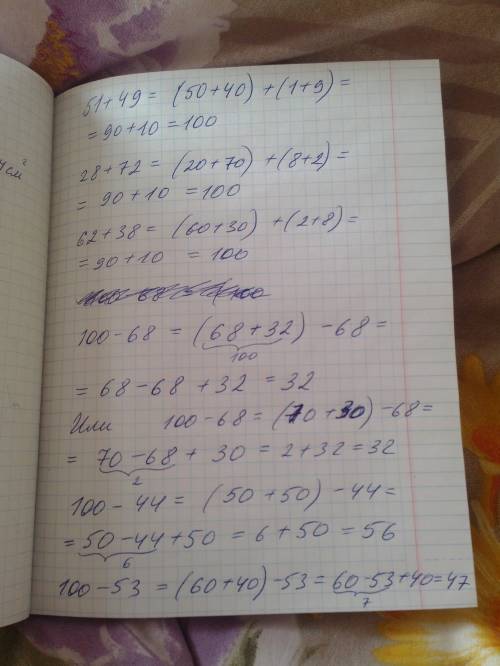 4 см²
51+49 = (50+40) +(1+9)=
= 90+10 = 100
28+72 = (20+70) +(8+2)=
= 90+10 = 100
62+38 = (60+30) +(2+8)=
= 90+10 = 100
100-68 = (68+32) -68=
100
= 68-68 +32 = 32
Или 100-68= (70+30) -68=
= 70-68 + 30 = 2+32=32
2
100-44= (50+50) -44=
= 50-44+50 = 6+50 = 56
6
100-53 = (60+40)-53 = 60-53+40=47
7